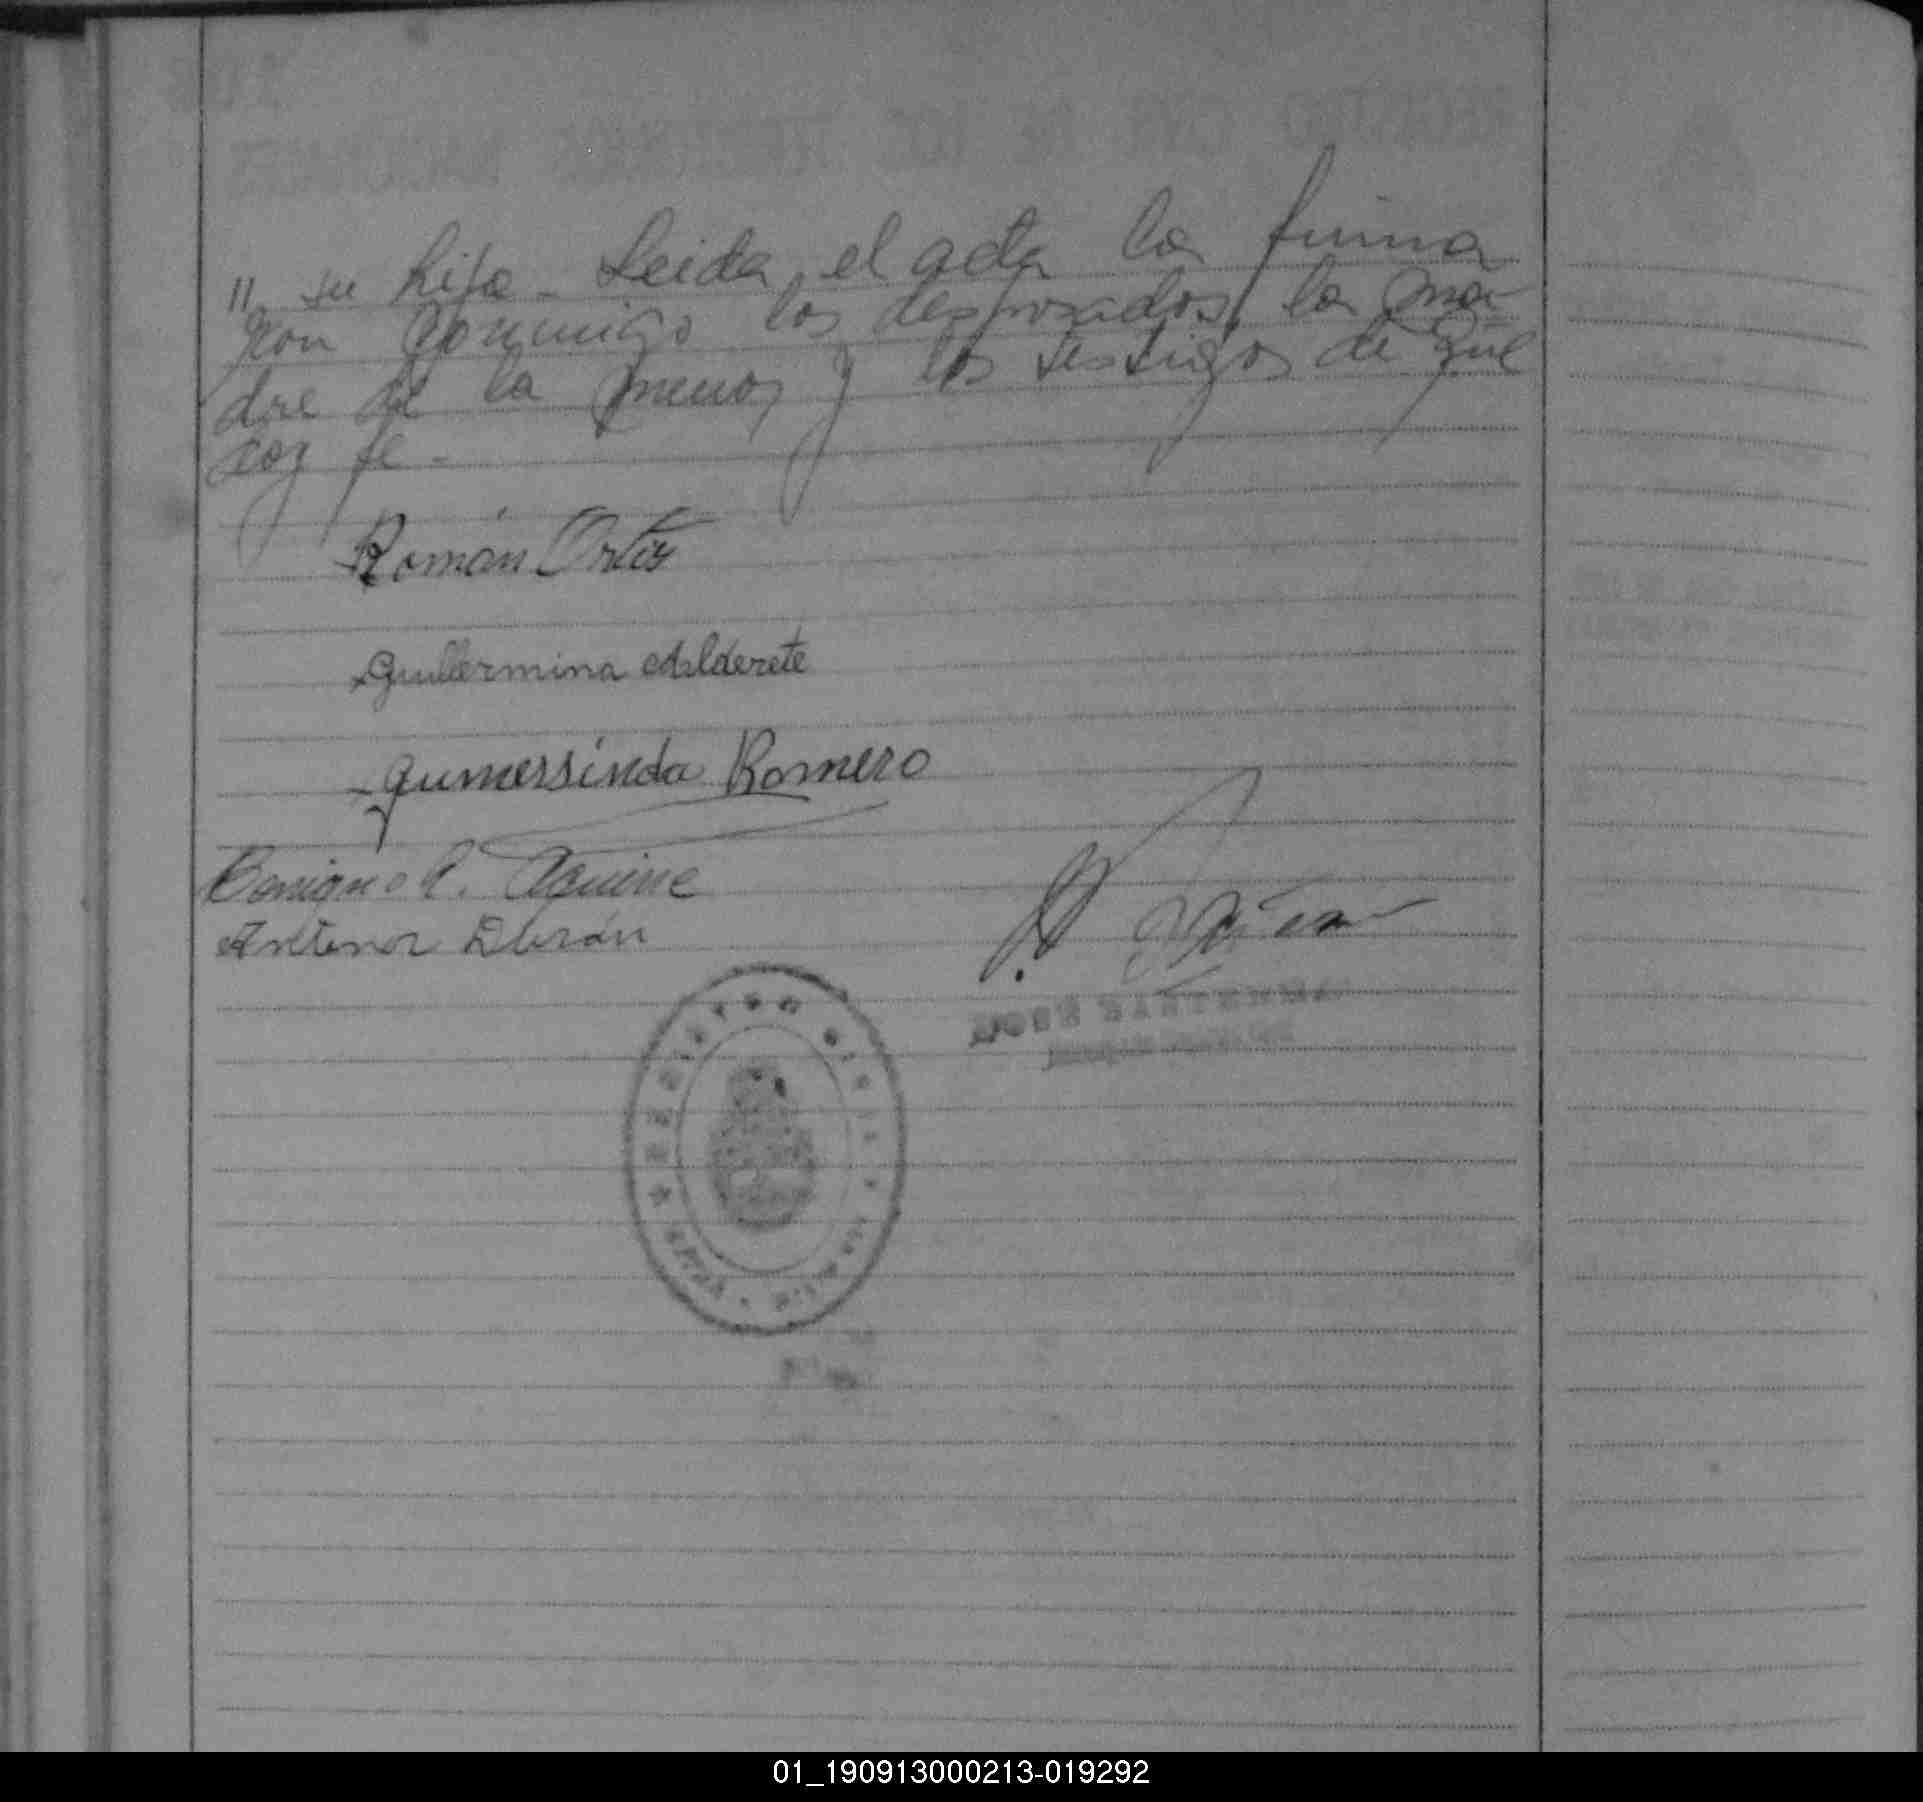 " su hija - Leida el acta la firma
ron conmigo los desposados, la ma-
dre de la menor y los testigos de que
doy fe -
Román Ortiz
Guillermina Alderete
Gumersinda Romero
Benigno A. Aguirre
Antenor Durán
JOSE
REGISTRO CIVIL
01_190913000213-019292